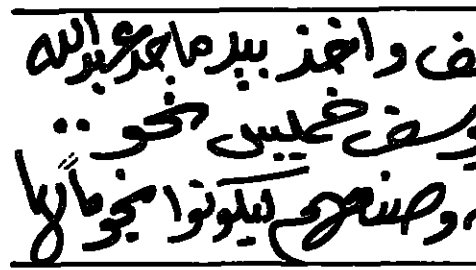 ف واخذ بيد ماجد عبدالله
وسف خميس نحو ..
وصنعهم ليكونوا نجوما لها